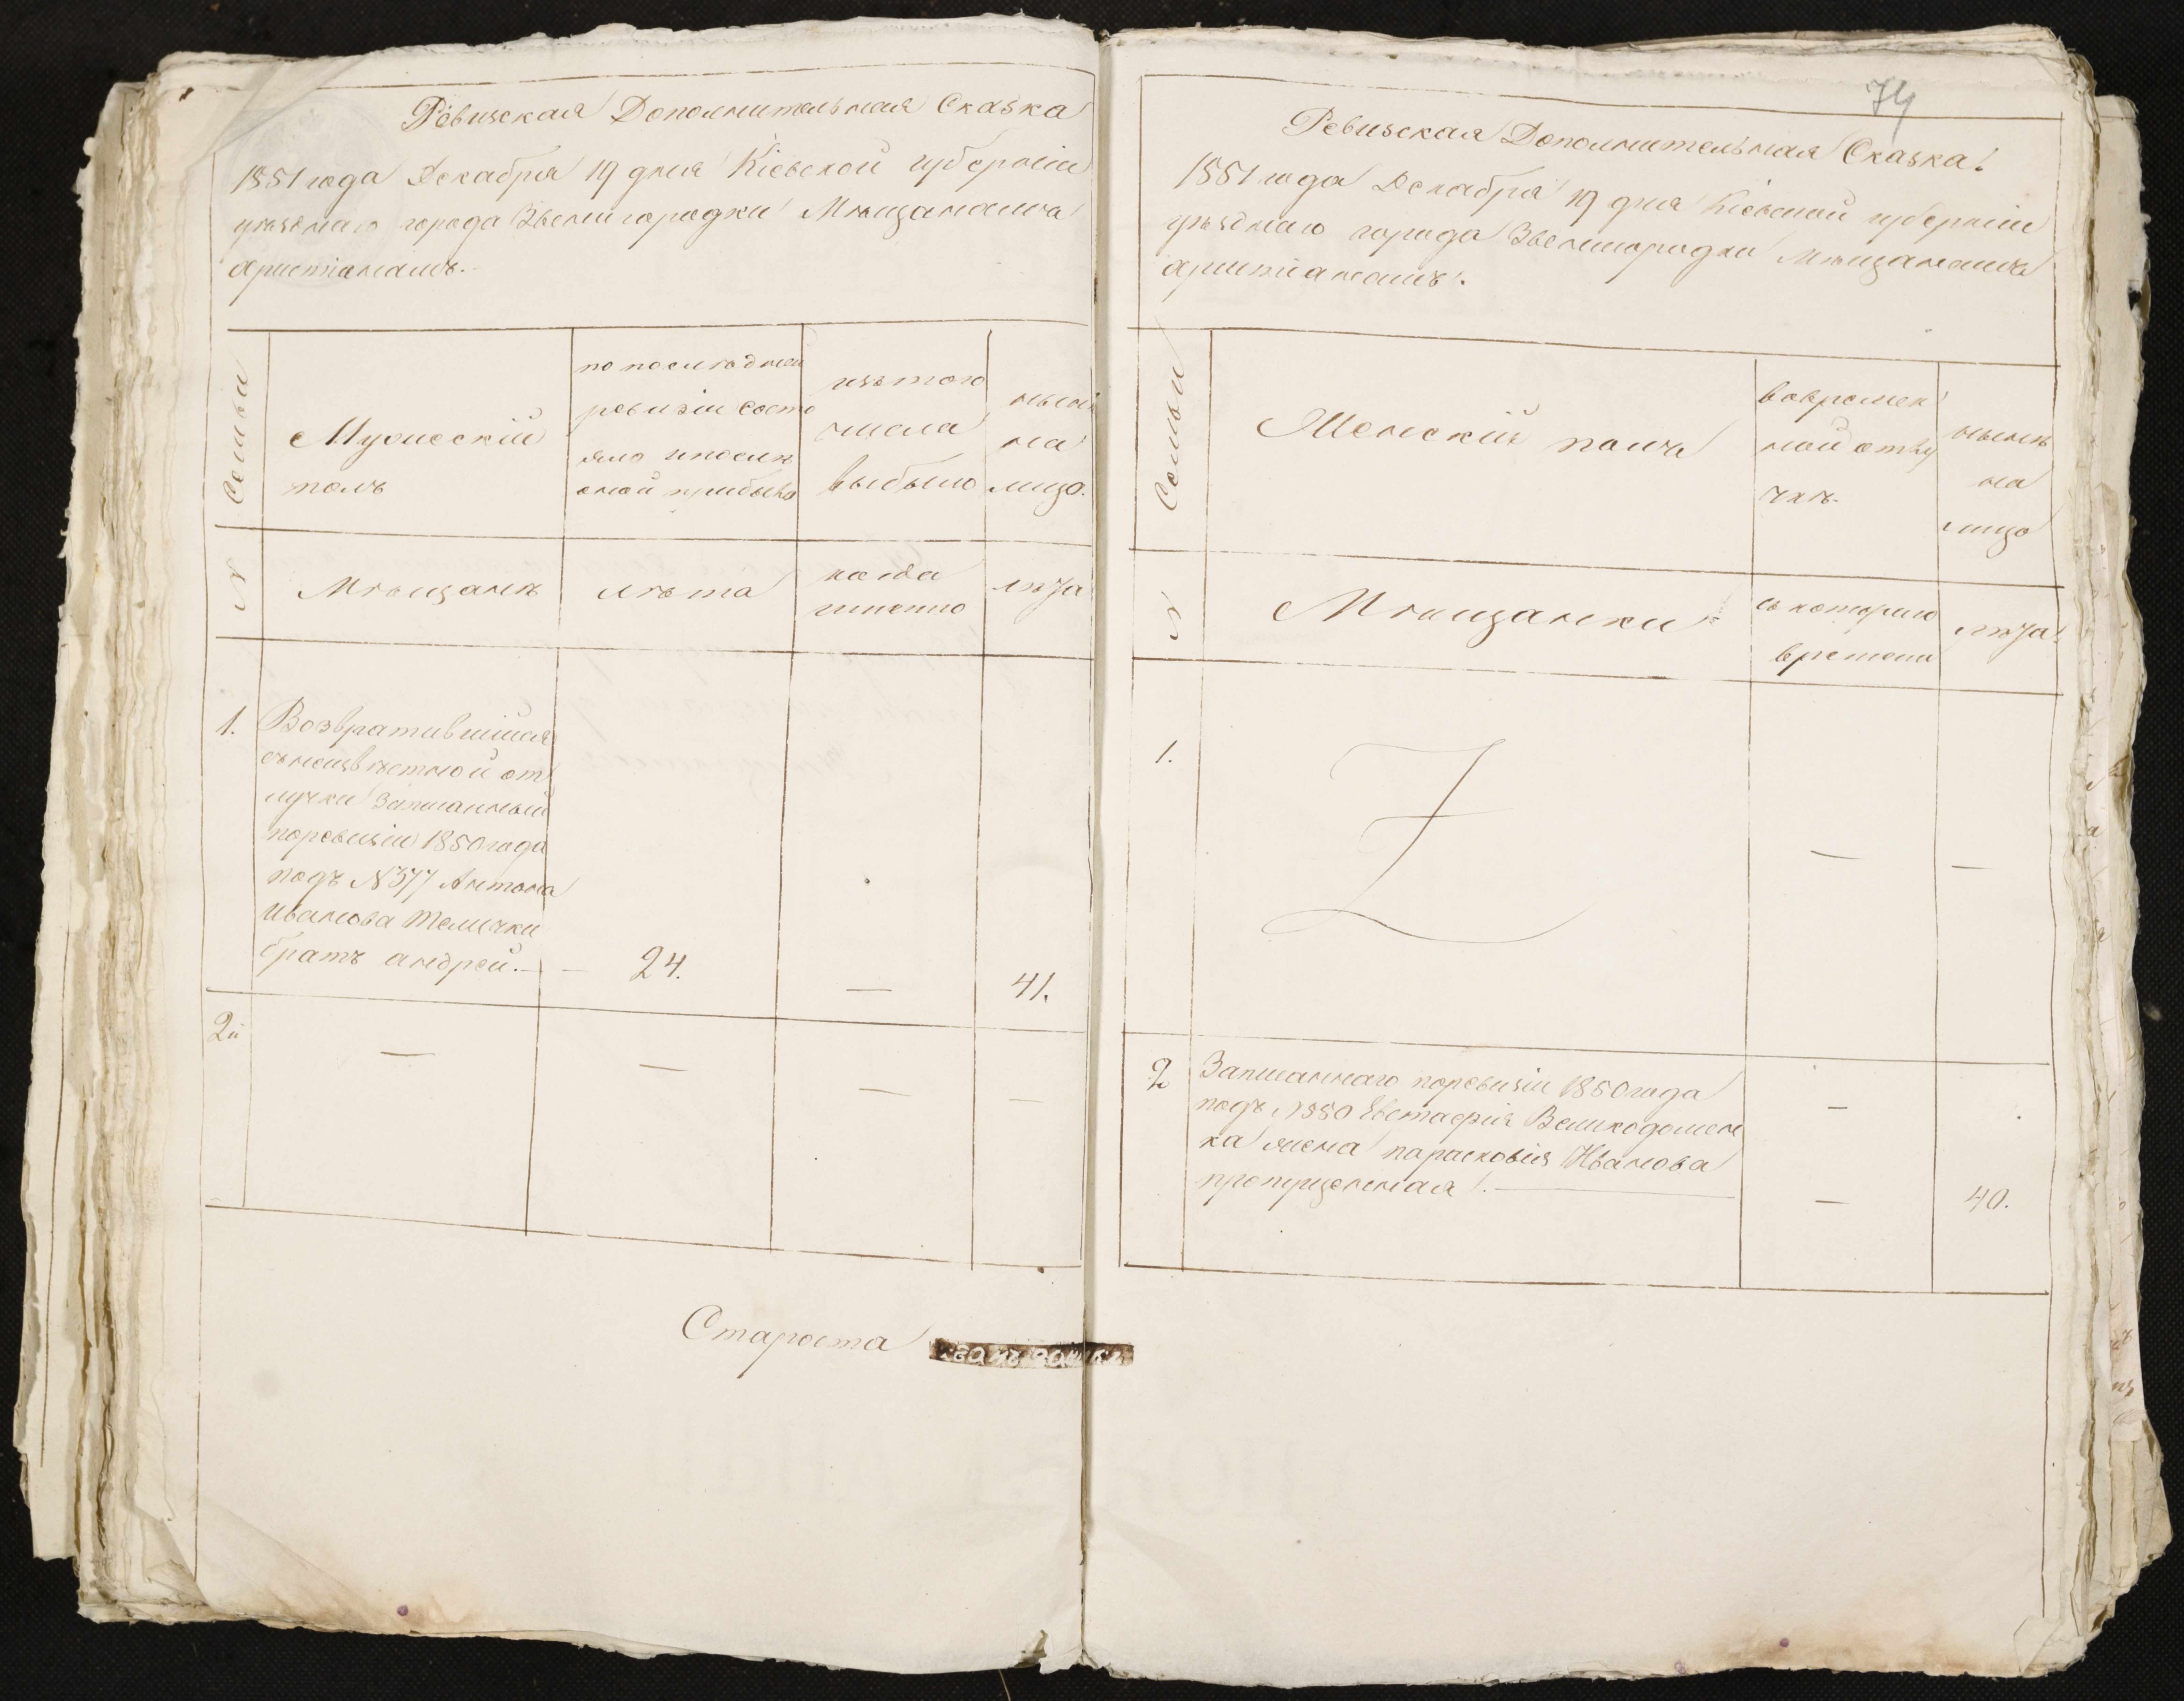 Ревизская Дополнительная Сказка
1851 года Декабря 19 дня Кіевской губерніи
уѣзднаго города Звенигородки Мѣщанамъ
христіанамъ.
Семьи
№
Мужескій
полъ
по послѣдней
ревизіи состо
яло и послѣ
оной прибыло
изъ того
числа
выбыло
нынѣ
на
лицо.
Мѣщанѣ
лѣта
когда
именно
лѣта
1.
Возвратившійся
съ неизвѣстной от
лучки записанный
по ревизіи 1850 года
подъ №377 Антона
Иванова Телички
братъ андрей.—
— 24.
—
41.
2й
—
—
—
—
Староста
74
Ревизская Дополнительная Сказка.
1851 года Декабря 19 дня Кіевской губерніи
уѣзднаго города Звенигородки Мѣщанамъ
христіанамъ.
Семьи
№
Женскій полъ
во времен
ной отлу
чкѣ.
нынѣ
на
лицо
Мѣщанки
съ котораго
времени
лѣта
1.
Z
—
—
2
Записаннаго по ревизіи 1850 года
подъ №550 Евстафія Великодомен
ка жена парасковія Иванова
пропущенная.—
—
—
40.